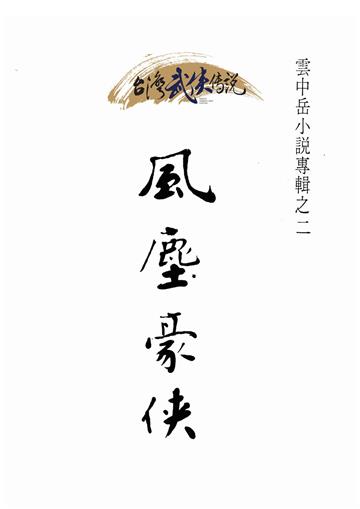 台灣武俠傳説
雲中岳小説專輯之二
風塵豪俠